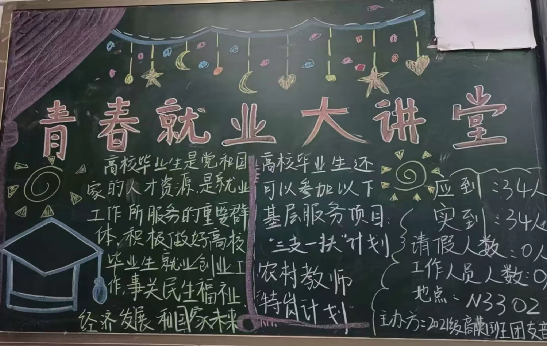 青春就业大讲堂
高校毕业生是党和国
家的人才资源,是就业
工作所服务的重要群
体,积极做好高校
毕业生就业创业工
作,事关民生福祉
经济发展和国家未来
高校毕业生还
可以参加以下
基层服务项目:
"三支一扶"计划
农村教师
"特岗计划"
应到:34人
实到:34人
请假人数:0人
工作人员人数:0
地点:N3302
主办方:2021级高班团支部